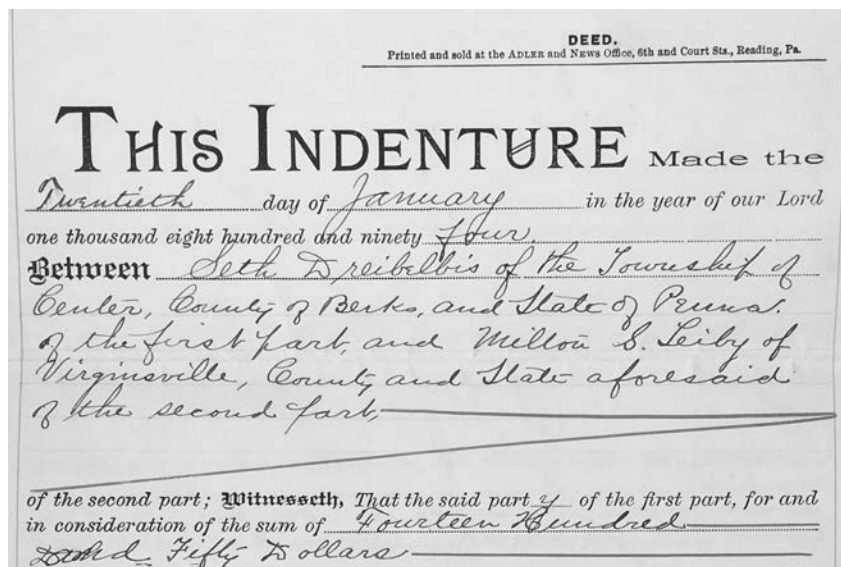 DEED.
Printed and sold at the ADLER and NEWS Office, 6th and Court Sts., Reading, Pa.
THIS INDENTURE Made the
Twentieth day of January in the year of our Lord
one thousand eight hundred and ninety four.
Between Seth Dreibelbis of the Township of
Center, County of Berks, and State of Penna.
of the first part, and Milton S. Leiby of
Virginsville, County and State aforesaid
of the second part,
of the second part; Witnesseth, That the said part y of the first part, for and
in consideration of the sum of Fourteen Hundred
and Fifty Dollars